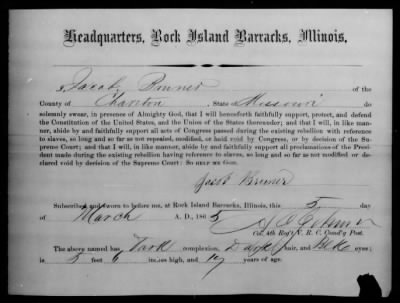 Headquarters, Rock Island Barracks, Illinois.
I, Jacob Bruner of the
County of Chariton, State of Missouri do
solemnly swear, in presence of Almighty God, that I will henceforth faithfully support, protect, and defend
the Constitution of the United States, and the Union of the States thereunder; and that I will, in like man-
ner, abide by and faithfully support all acts of Congress passed during the existing rebellion with reference
to slaves, so long and so far as not repealed, modified, or held void by Congress, or by decision of the Su-
preme Court; and that I will, in like manner, abide by and faithfully support all proclamations of the Presi-
dent made during the existing rebellion having reference to slaves, so long and so far as not modified or de-
clared void by decision of the Supreme Court: So help me God.
Jacob Bruner
Subscribed and sworn to before me, at Rock Island Barracks, Illinois, this 5 day
of March A. D., 1865
Col. 4th Reg't V. R. C. Com'd'g Post.
The above named has Dark complexion, Dark hair, and Blk eyes;
is 5 feet 6 inches high, and 19 years of age.